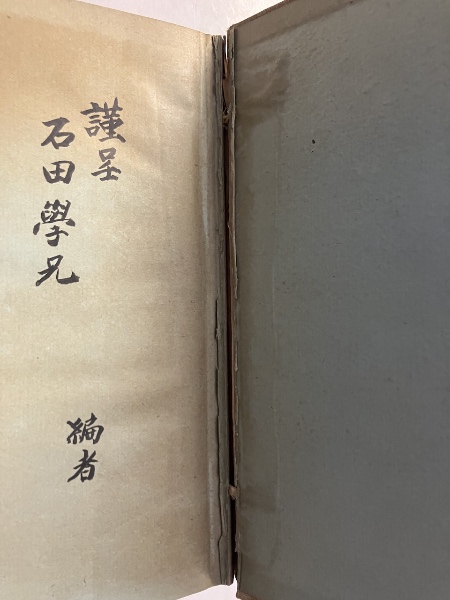 謹呈
石田學兄
編者